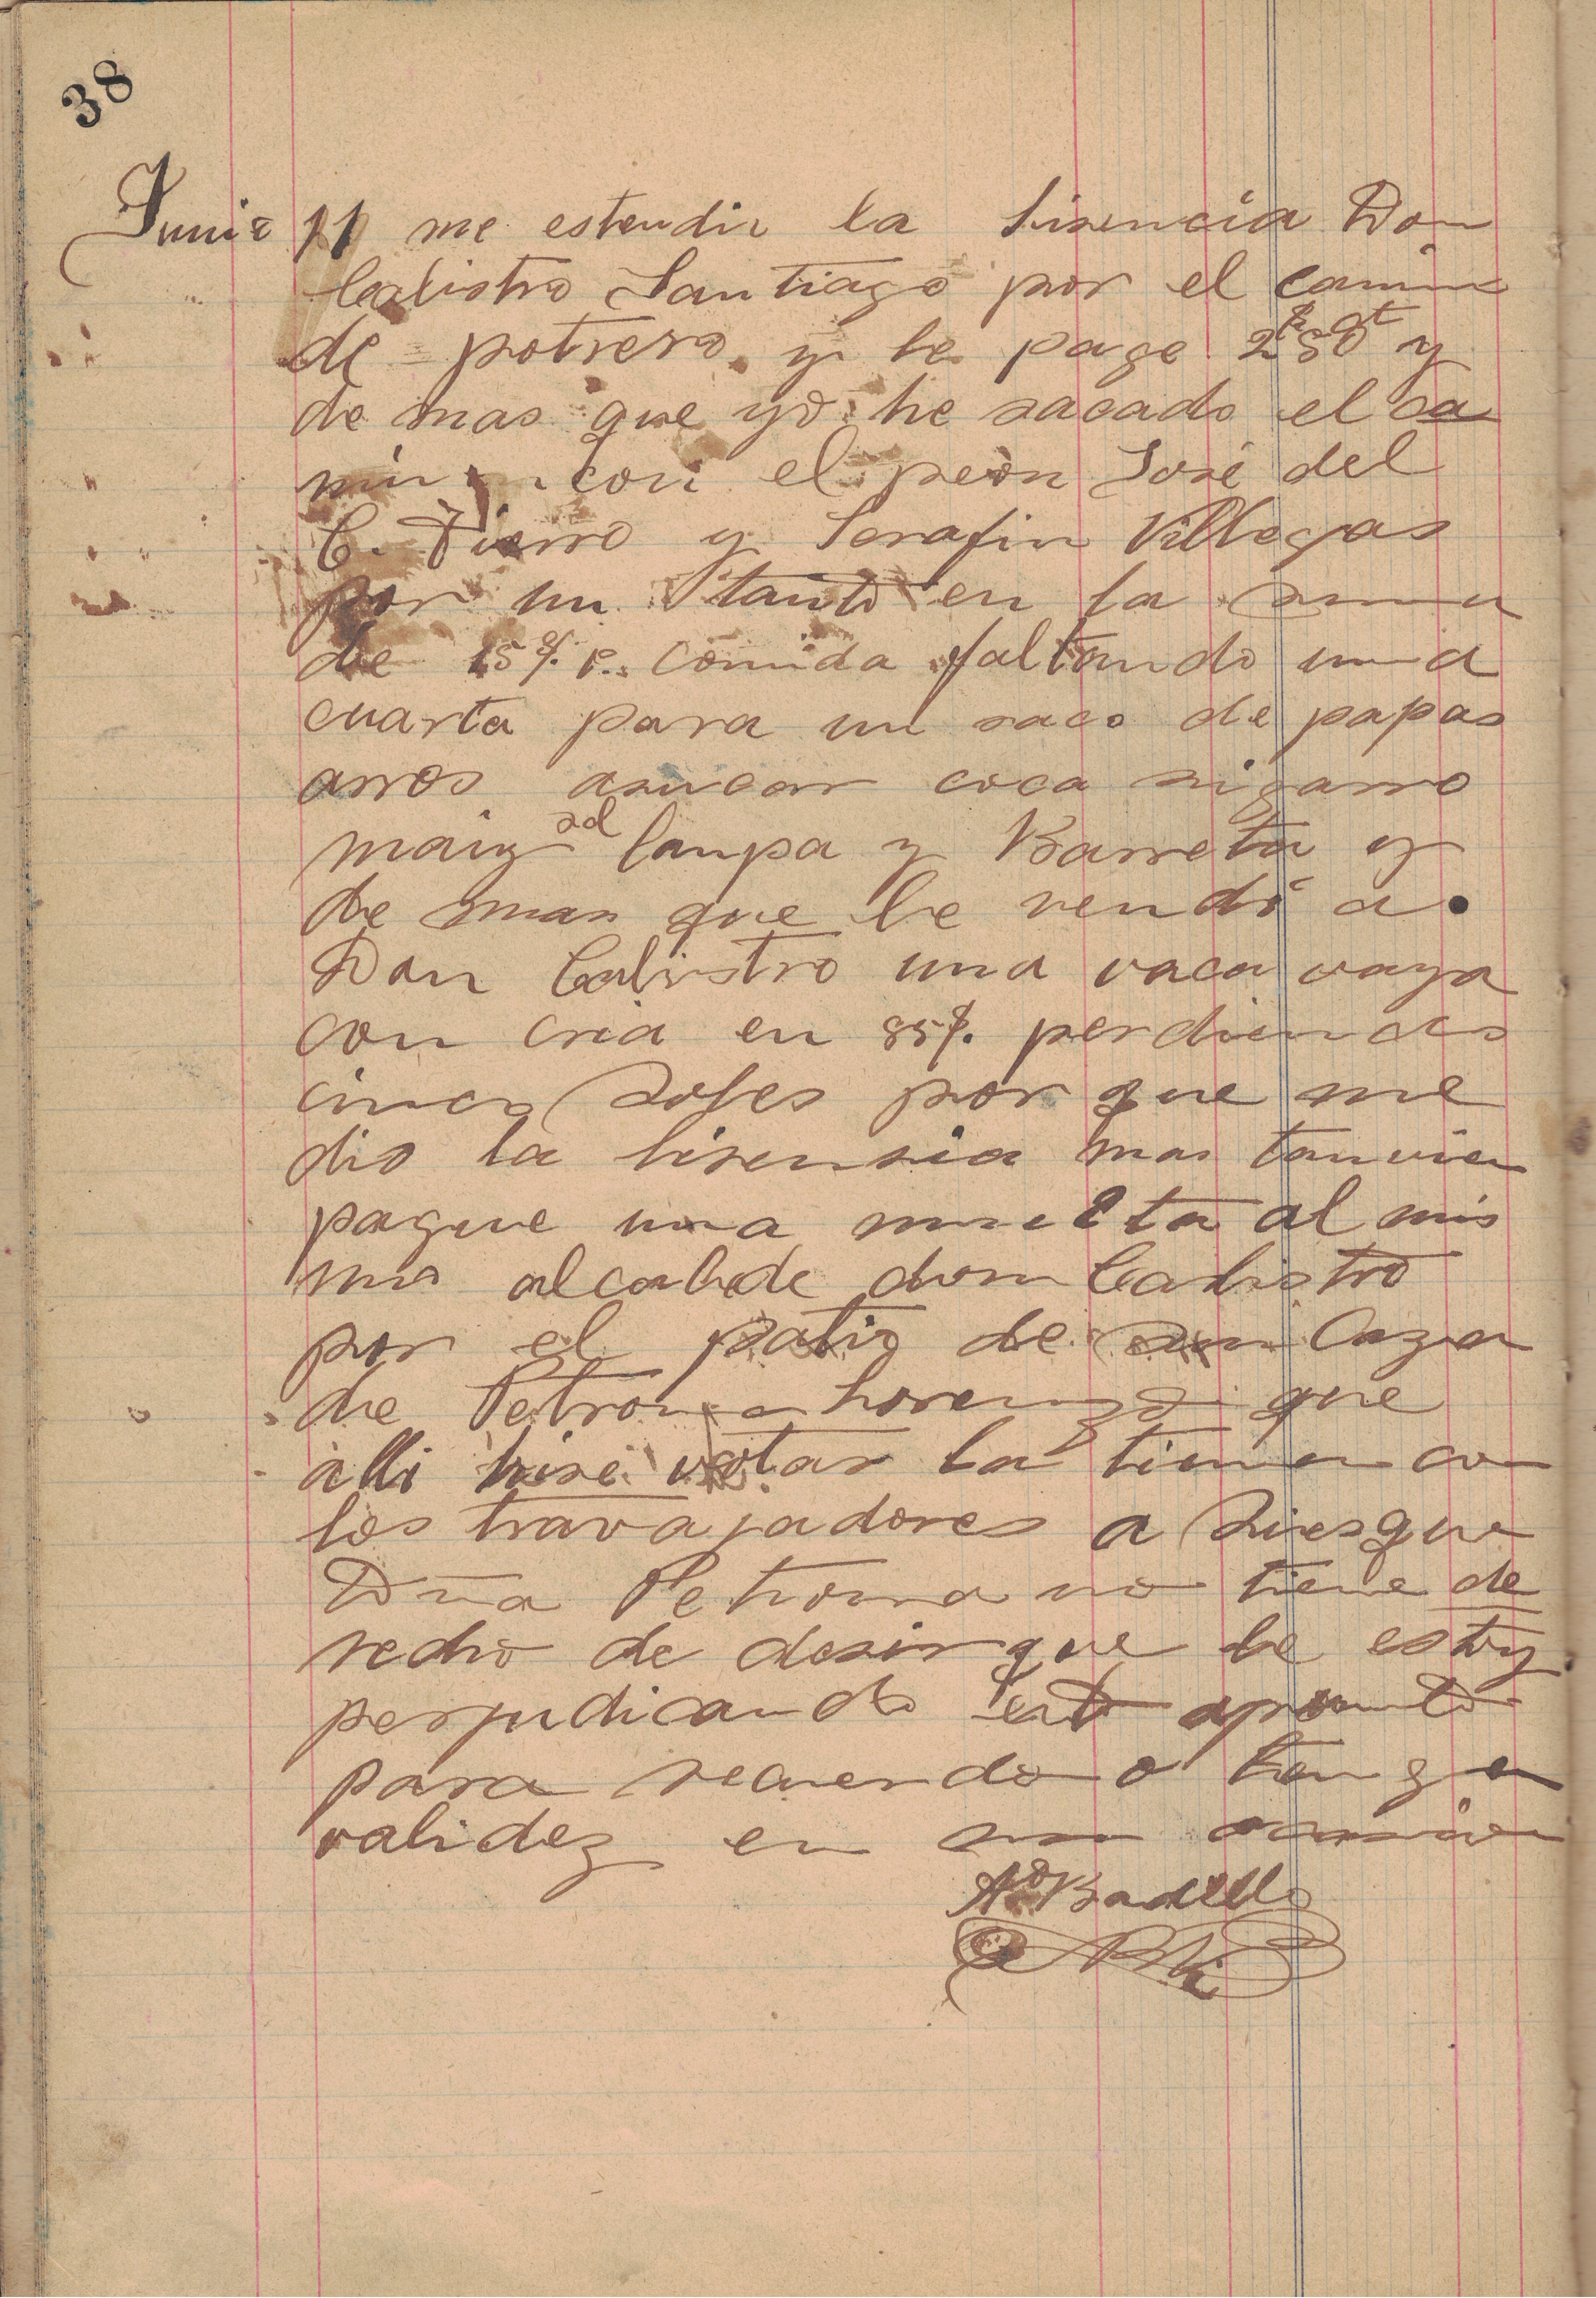 38
Junio 11 me estendio la lisencia Don
Calistro Santiago por el camino
de potrero y le page 2 50 y
de mas que yo he sacado el ca
mino con el peon José del
C. Fierro y Serafin Villegas
por un tanto en la suma
de 15 comida faltando una
cuarta para un saco de papas
arros asucar coca sigarro
maiz sal lampa y Barreta y
de mas que le vendi a
Don Calistro una vaca vaya
con cria en 85 perdiendo
cinco soles por que me
dio la lisensia mas tanvien
pague una muelta al mis
mo alcalde don Calistro
por el patio de su Caza
de Petrona Lorenza que
alli hise votar la tierra con
los travajadores a
Dña Petrona no tiene de
recho de desir que le estoy
perjudicando esto apunto
para recuerdo o tenga
validez en su ocasion
Ado Badillo